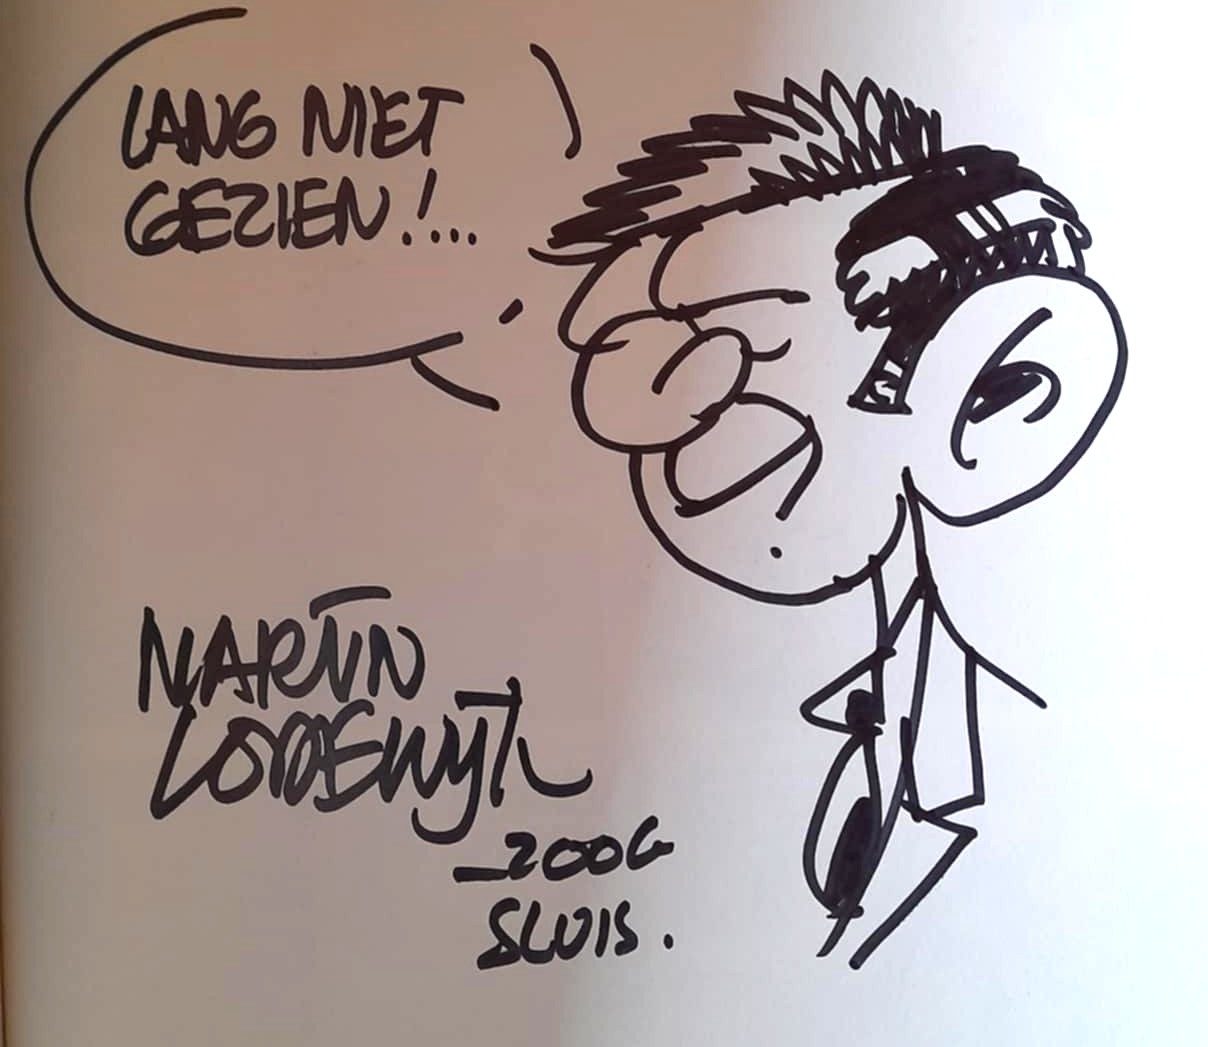 LANG NIET
GEZIEN!...
MARTIN
LODEWYK
_2006
SLUIS.